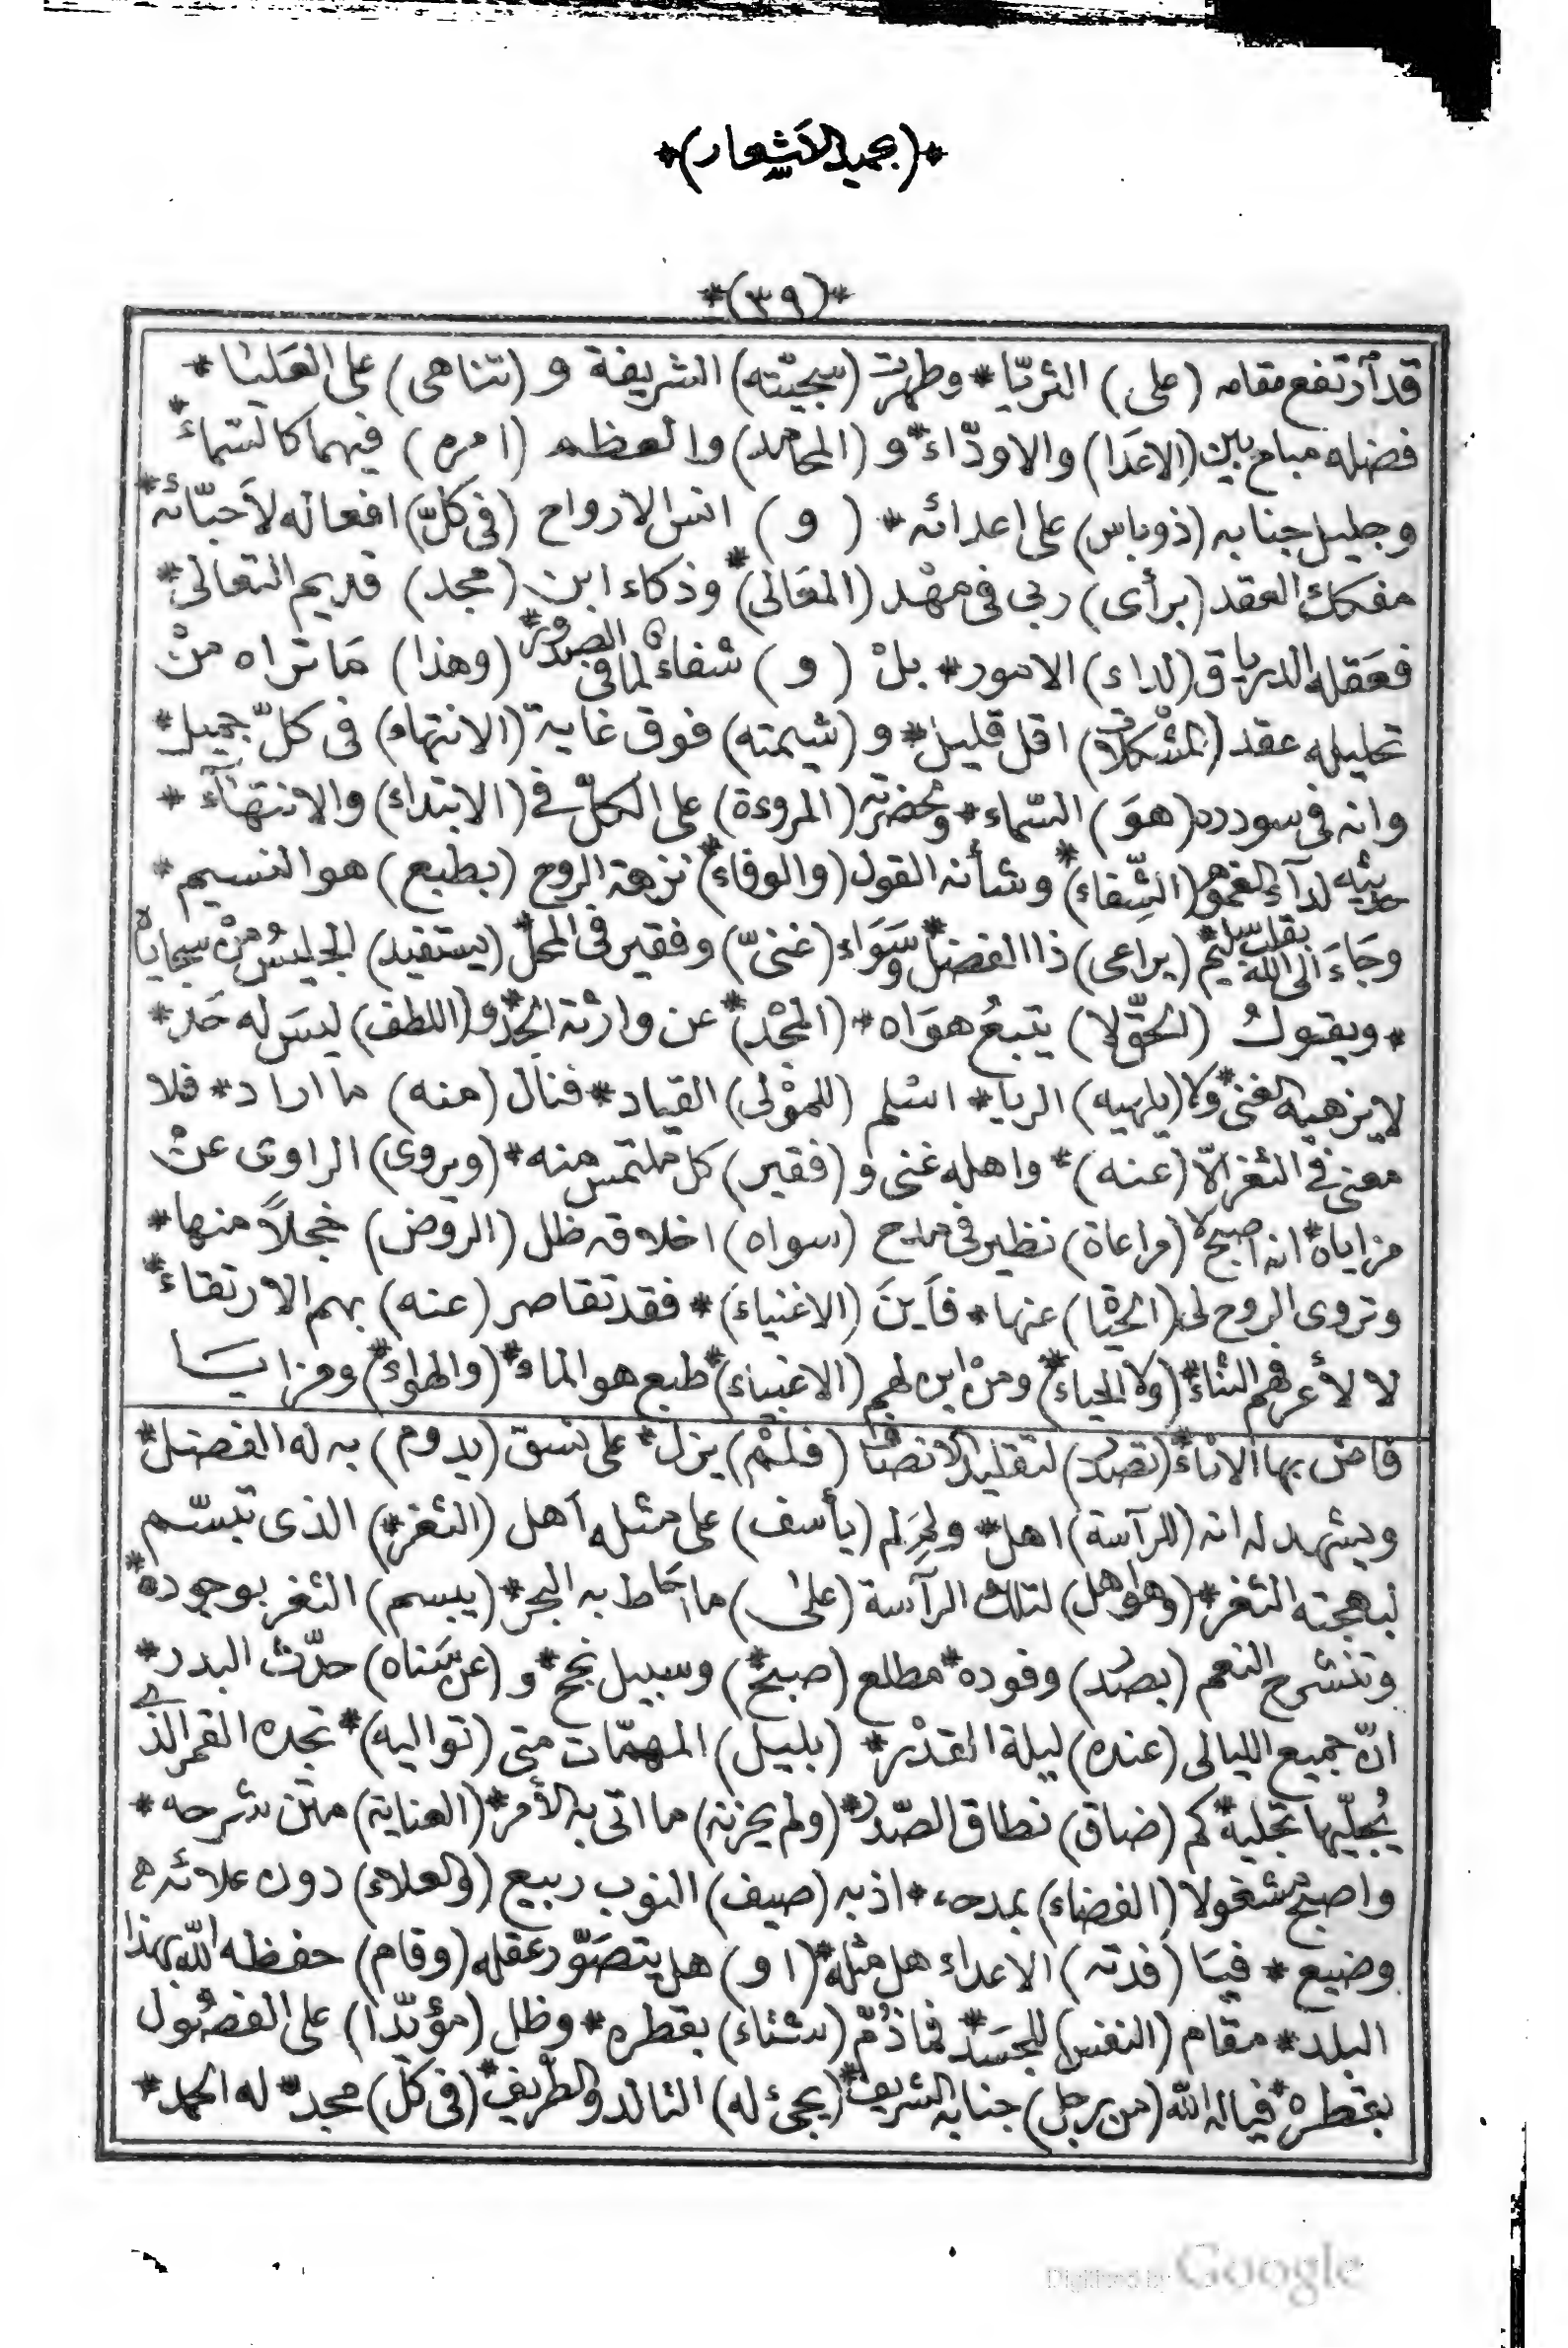 *(بحميد الأشعار)*
*(٣٩)*
قد أرتفع مقامه (على) الثريّا * وطهرت (سجيّته) الشريفة و (تناهى) على العَليَا *
فضله مباح بين (الاعدَا) والاودّاء * و (المحامد) والعظمه (امره) فيهما كالسّماء *
وجليل جنابه (ذوباس) على اعدائه * (و) انس الارواح (فى كلّ) افعاله لأحبّائه *
مفكك العقد (برأى) ربى فى مهْد (المعَالى) * وذكاء ابن (مجد) قديم التعالى *
فعَقله الدرياق (لداء) الامور * بلْ (و) شفاءٌ لما فى الصدور * (وهذا) مَا تراه منْ
تحليله عقد (المشكلات) اقل قليل * و (شيمته) فوق غاية (الانتهاء) فى كلّ جميل *
وانه فى سودده (هوَ) السّماء * وبحضرته (المروءة) على الكلّ فى (الابتداء) والانتهاء *
حديثه لدآء الغم هو (الشِّفاء) * وشأنه القول (والوفاء) * نزهة الروح (بطبع) هو النسيم *
وجَاءَ الى اللّه بقلب سليم * (يراعى) ذا الفضل * وسَوَاء (غنىّ) وفقير فى المحلّ * (يستفيد) الجليسُ منْ سجاياه
* ويقولُ (الحقّ لا) يتبعُ هوَاه * (المجْد) * عن وارثه الجدّ * و (اللطف) ليسَ له حَد *
لا يزهيه الغنى * ولا (يلهيه) الريا * اسْلم (للموْلى) القياد * فنال (منه) ما اراد * فلا
معنى فى الثغر الّا (عنه) * واهله غنى و (فقير) كل ملتمس منه * (ويروى) الراوى عنْ
مزاياه * انه اصبح لا (مراعاة) نظير فى مدح (سواه) اخلاقه ظل (الروض) خجلاً منها *
وتروى الروح لى (الحيَا) عنها * فاَينَ (الاغنياءَ) * فقد تقاصر (عنه) بهم الارتقاء *
لا لأعرفهم الثناء * (ولا الحياء) * ومنْ اين لهم (الاغبياء) * طبع هو الماء * (والهواء) * ومزايَا
فاض بها الاناء * (تصدّر) لتقليد الانصَا (فلمْ) يزل * على نسق (يدوم) به له الفضل *
ويشهد له انه (للرآسة) اهل * ولمِ لم (يأسف) على مثله اَهل (الثغر) * الذى تبسّم
لبهجته الثغر * (وهل هو اهل) لتلك الرآسة (على) ما احَاط به البحر * (يبسم) الثغر بوجوده *
وتنشرح النعم (بصدر) وفوده * مطلع (صبح) * وسبيل نجح * و (عن سَناه) حدّث البدر *
انّ جميع الليالى (عنده) ليلة القدْر * (بليل) المهمّات متى (تواليه) * تجده القمر الذى
يُجلّيها تجلية * كم (ضاق) نطاق الصّدر * (ولم يحزنه) ما اتى به الأمر * (العناية) متن شرحه *
واصبح مشغولا (الفضاء) بمدحه * اذ به (صيف) النوب ربيع (والعلاء) دون علائه *
وضيع * فيَا (فدته) الاعداء هل مثله * (او) هل يتصَوّر عقله (وقام) حفظه اللّه بهذا
البلد * مقام (النفس) للجسَد * فما ذُمّ (شتاء) بقطره * وظل (مؤبّدا) على الفصُول
بقطره * فياله اللّه (من رجل) جنابه الشريف * (يجئ له) التالد والطريف * (فى كلّ) مجد * له الحمد *
Digitized by Google